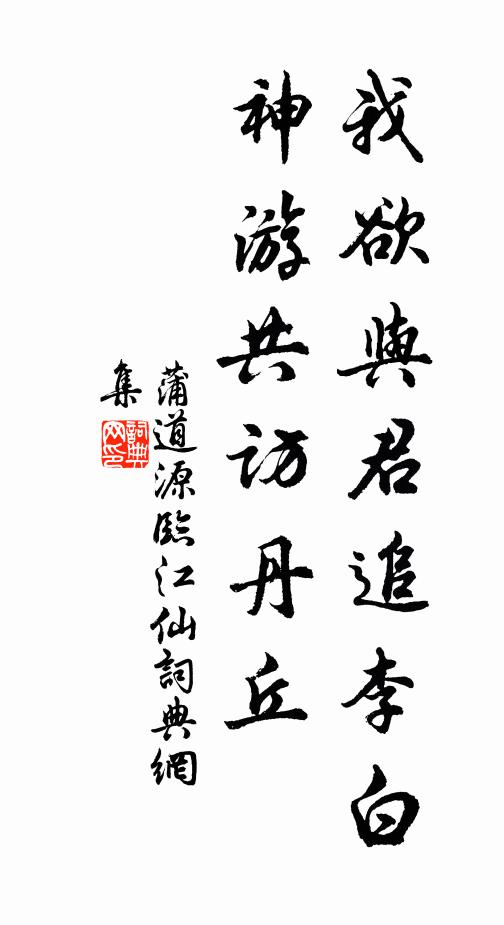 我欲與君追李白
神游共訪丹丘
蒲道源臨江仙詞典網
集
詞典
网印